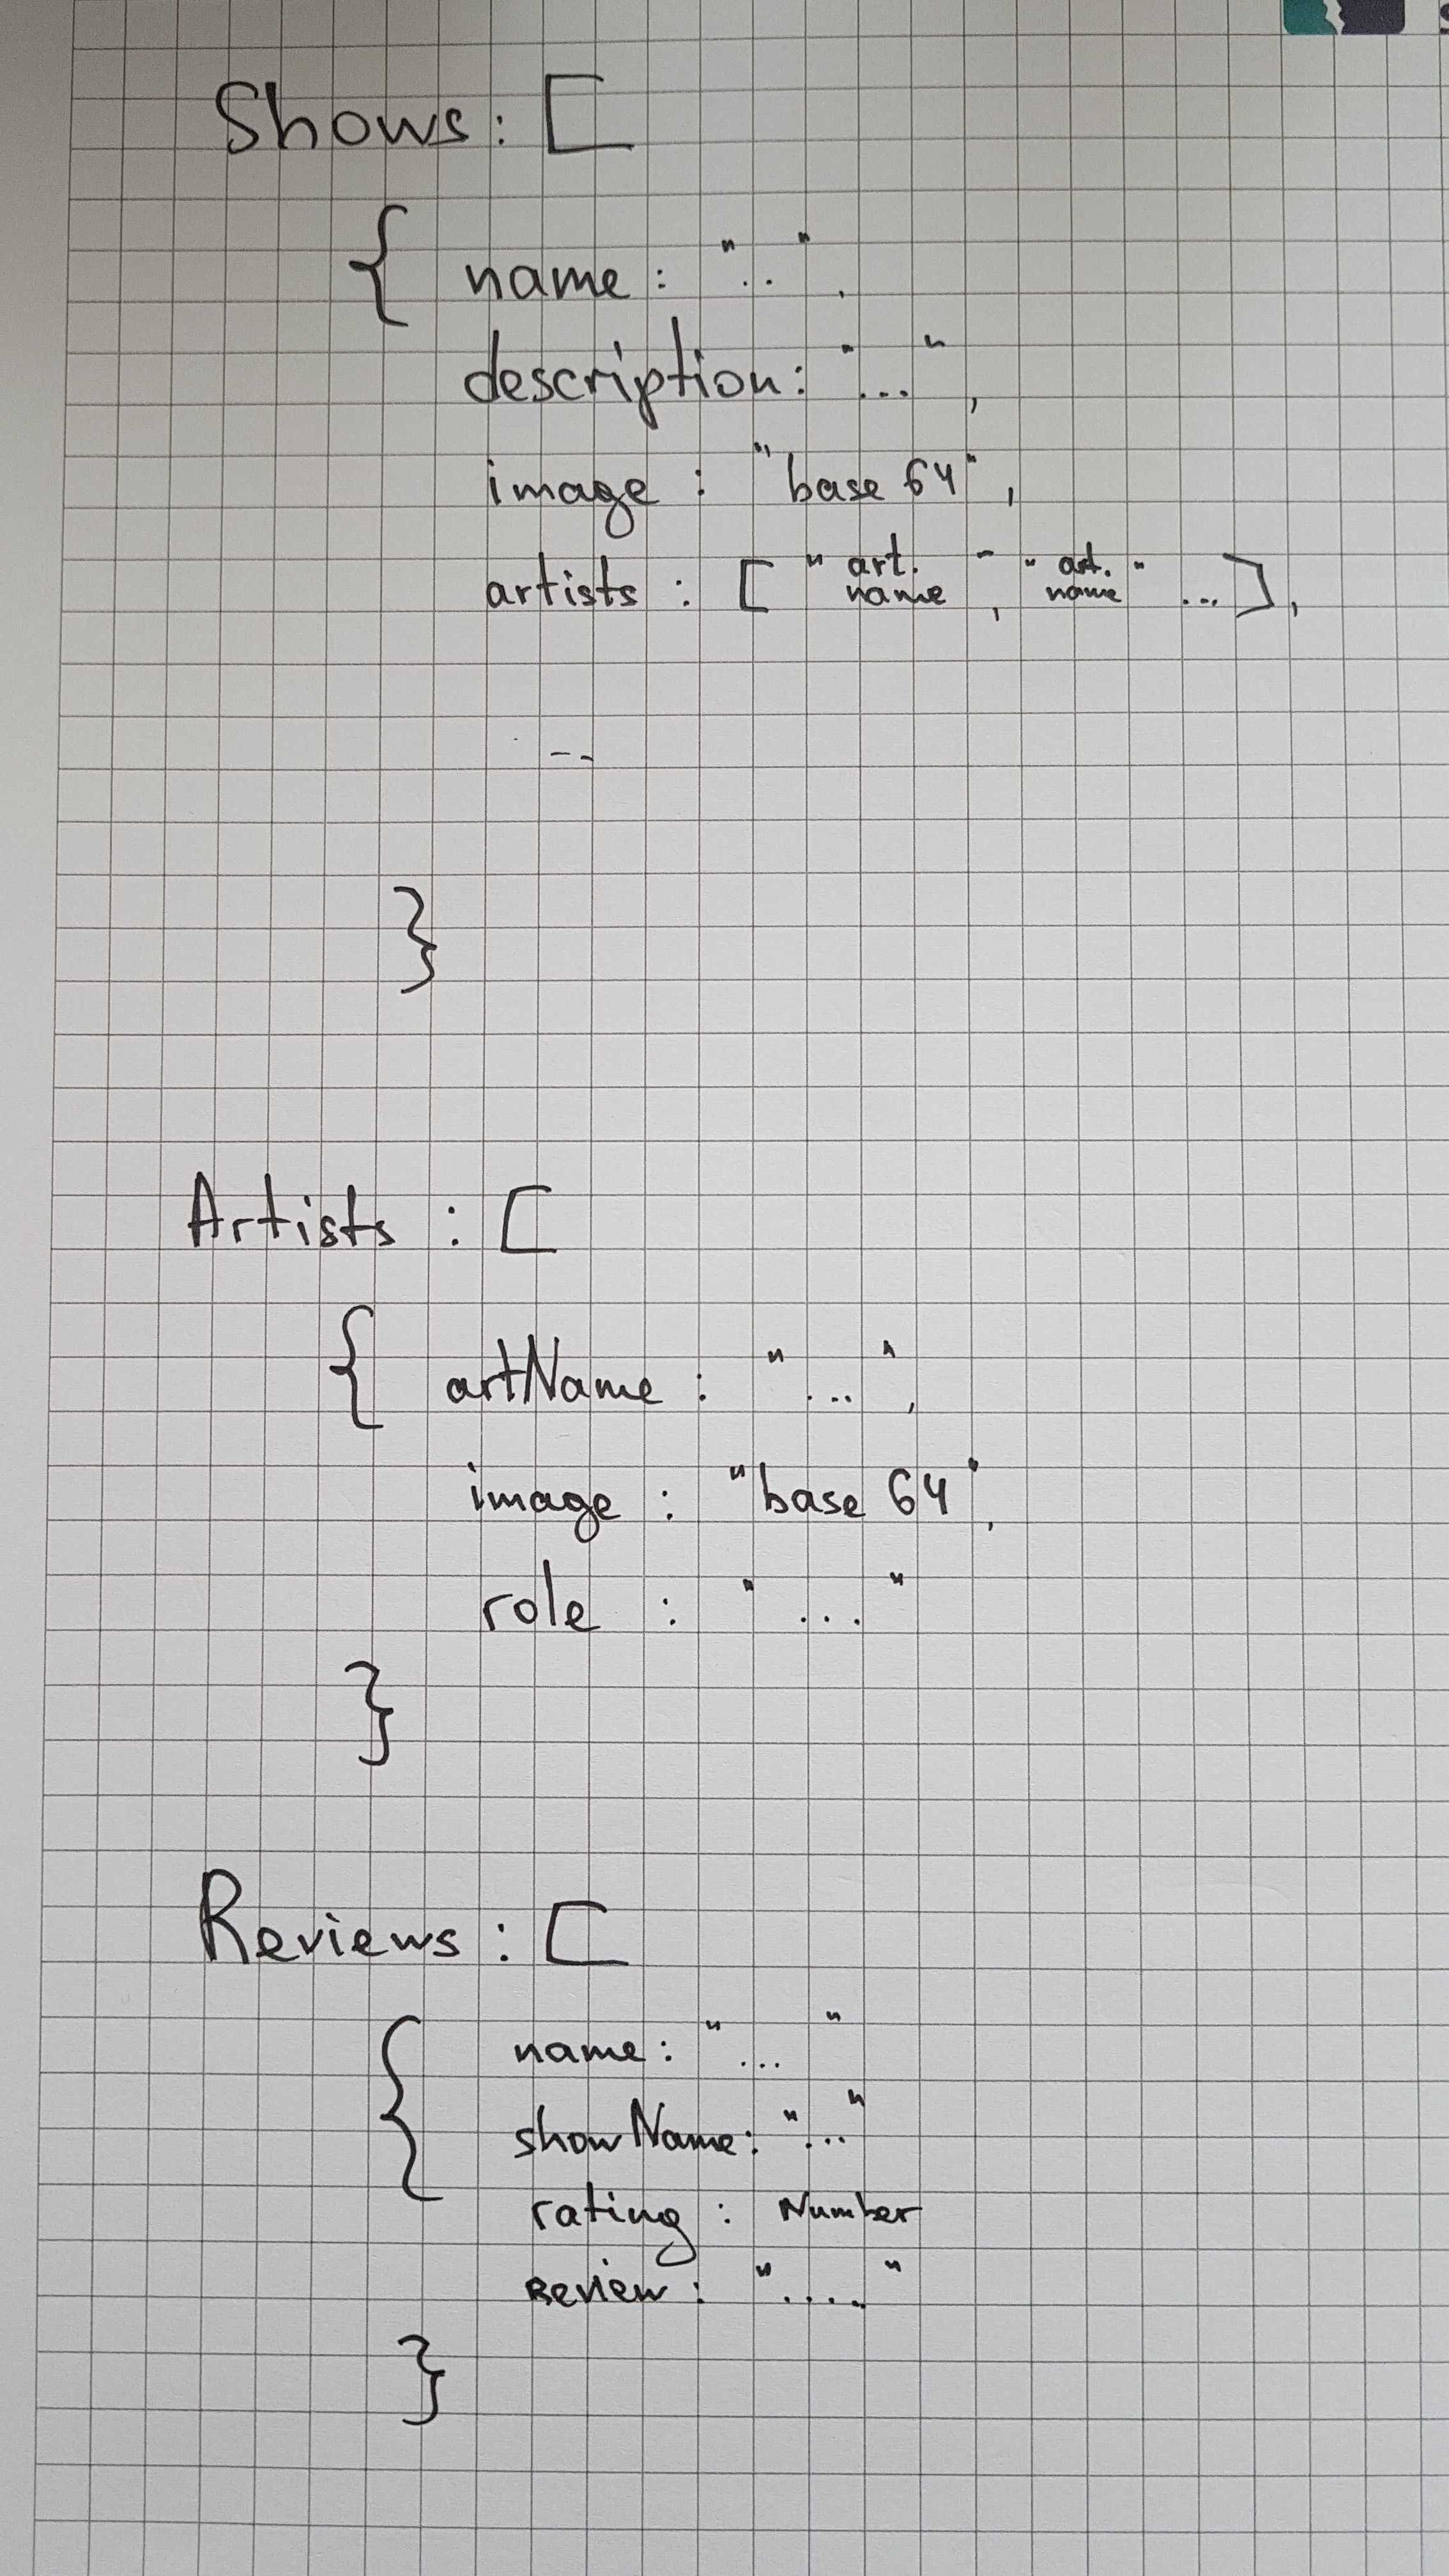 Shows: [
{ name: "..",
description: "...",
image: "base 64",
artists: [ "art. name", "art. name" ... ],
--
}
Artists: [
{ artName: "...",
image: "base 64",
role: "..."
}
Reviews: [
{ name: "..."
showName: "..."
rating: Number
Review: "...."
}